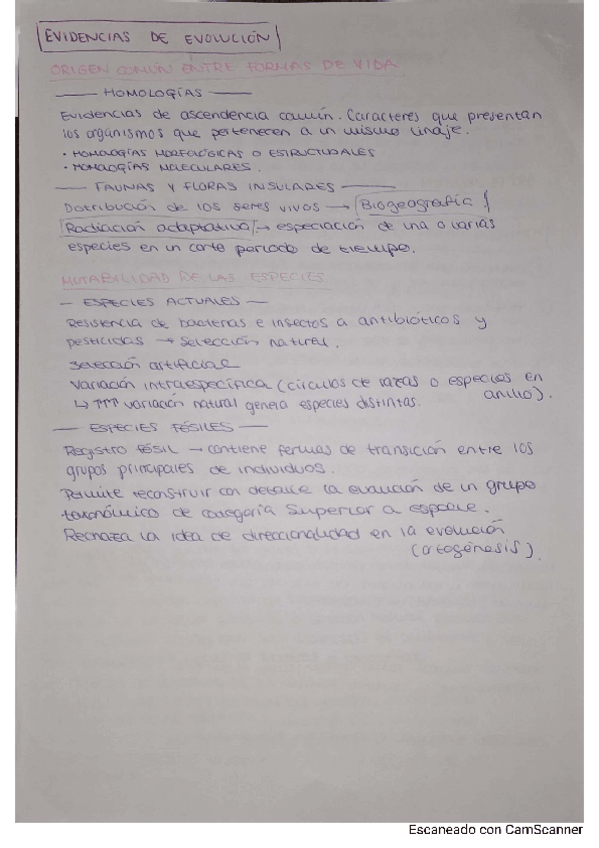 EVIDENCIAS DE EVOLUCIÓN
ORIGEN COMÚN ENTRE FORMAS DE VIDA
HOMOLOGÍAS
Evidencias de ascendencia común. Caracteres que presentan
los organismos que pertenecen a un mismo linaje.
• HOMOLOGÍAS MORFOLÓGICAS O ESTRUCTURALES
• HOMOLOGÍAS MOLECULARES.
FAUNAS Y FLORAS INSULARES
Distribución de los seres vivos → Biogeografía
Radiación adaptativa → especiación de una o varias
especies en un corto periodo de tiempo.
MUTABILIDAD DE LAS ESPECIES
— ESPECIES ACTUALES —
Resistencia de bacterias e insectos a antibióticos y
pesticidas → selección natural.
Selección artificial
Variación intraespecífica (círculos de razas o especies en
anillo).
↳ ↑↑↑ variación natural genera especies distintas.
— ESPECIES FÓSILES —
Registro fósil → contiene formas de transición entre los
grupos principales de individuos.
Permite reconstruir con detalle la evolución de un grupo
taxonómico de categoría superior a especie.
Rechaza la idea de direccionalidad en la evolución
(ortogénesis).
Escaneado con CamScanner